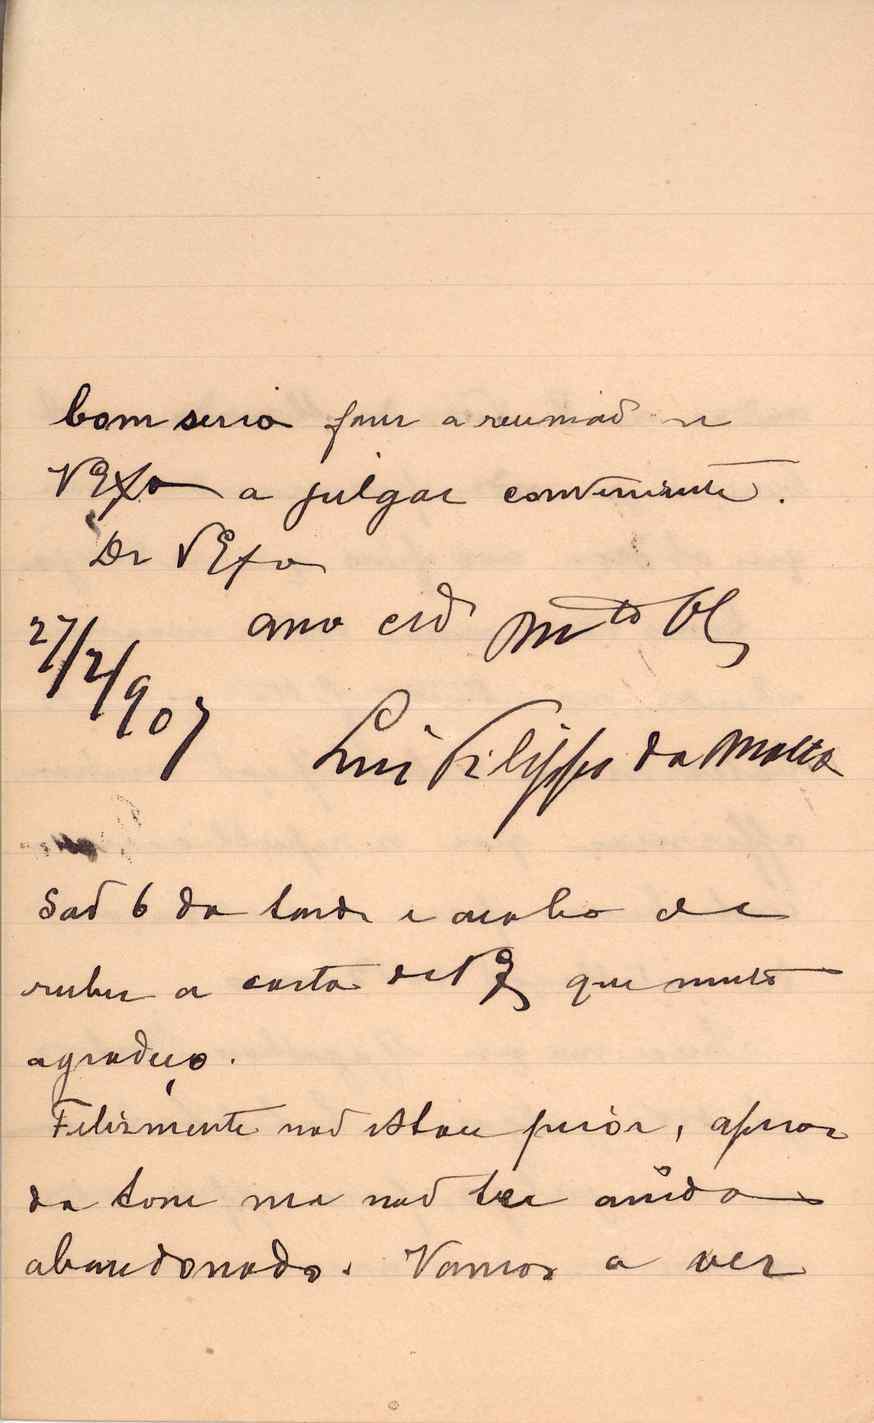 bom seria fazer a reunião se
V Exa a julgar conveniente.
De V Exa
amo cro mto obo
27/2/907
Luiz Filippe da Matta
São 6 da tarde e acabo de
receber a carta de V Ex que muito
agradeço.
Felizmente não estou peior, apesar
da tosse me não ter ainda
abandonado. Vamos a ver